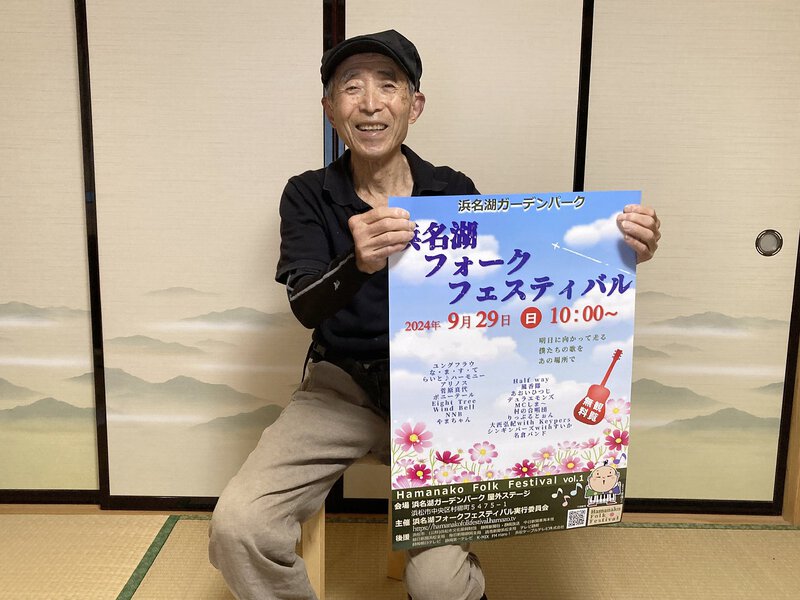 浜名湖ガーデンパーク
浜名湖
フォーク
フェスティバル
2024年 9月29日 日 10:00～
明日に向かって走る
僕たちの歌を
あの場所で
ユングフラウ
な・ま・す・て
らいと♪ハーモニー
アリノス
菅原真代
ポニーテール
Eight Tree
Wind Bell
NNB
やまちゃん
Half way
風香師
あおいひつじ
デュラエモンズ
MCしま～
村の合唱団
りっぷるとぉん
大西弘紀with Keypers
シンギンバーズwithすいか
名倉バンド
観覧
無料
Hamanako Folk Festival vol.1
会場 浜名湖ガーデンパーク 屋外ステージ
浜松市中央区村櫛町5475-1
主催 浜名湖フォークフェスティバル実行委員会
https://hamanakofolkfestival.hamazo.tv
後援
K-MIX FM Haro!
Hamanako
Folk
Festival